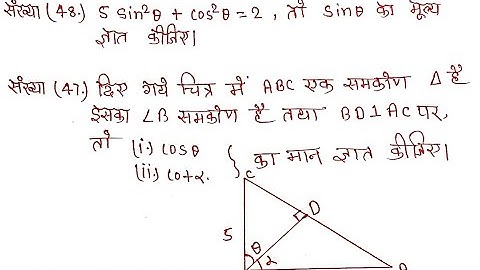 संख्या (48.) 5 sin²θ + cos²θ = 2 , तो sinθ का मूल्य
ज्ञात कीजिए।
संख्या (47.) दिए गये चित्र में ABC एक समकोण Δ है
इसका ∠B समकोण है तथा BD⊥AC पर,
तो (i.) cosθ
(ii.) cotα. } का मान ज्ञात कीजिए।
C
D
5
θ
α